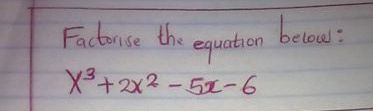 Factorise the equation below:
X³ + 2x² - 5x - 6